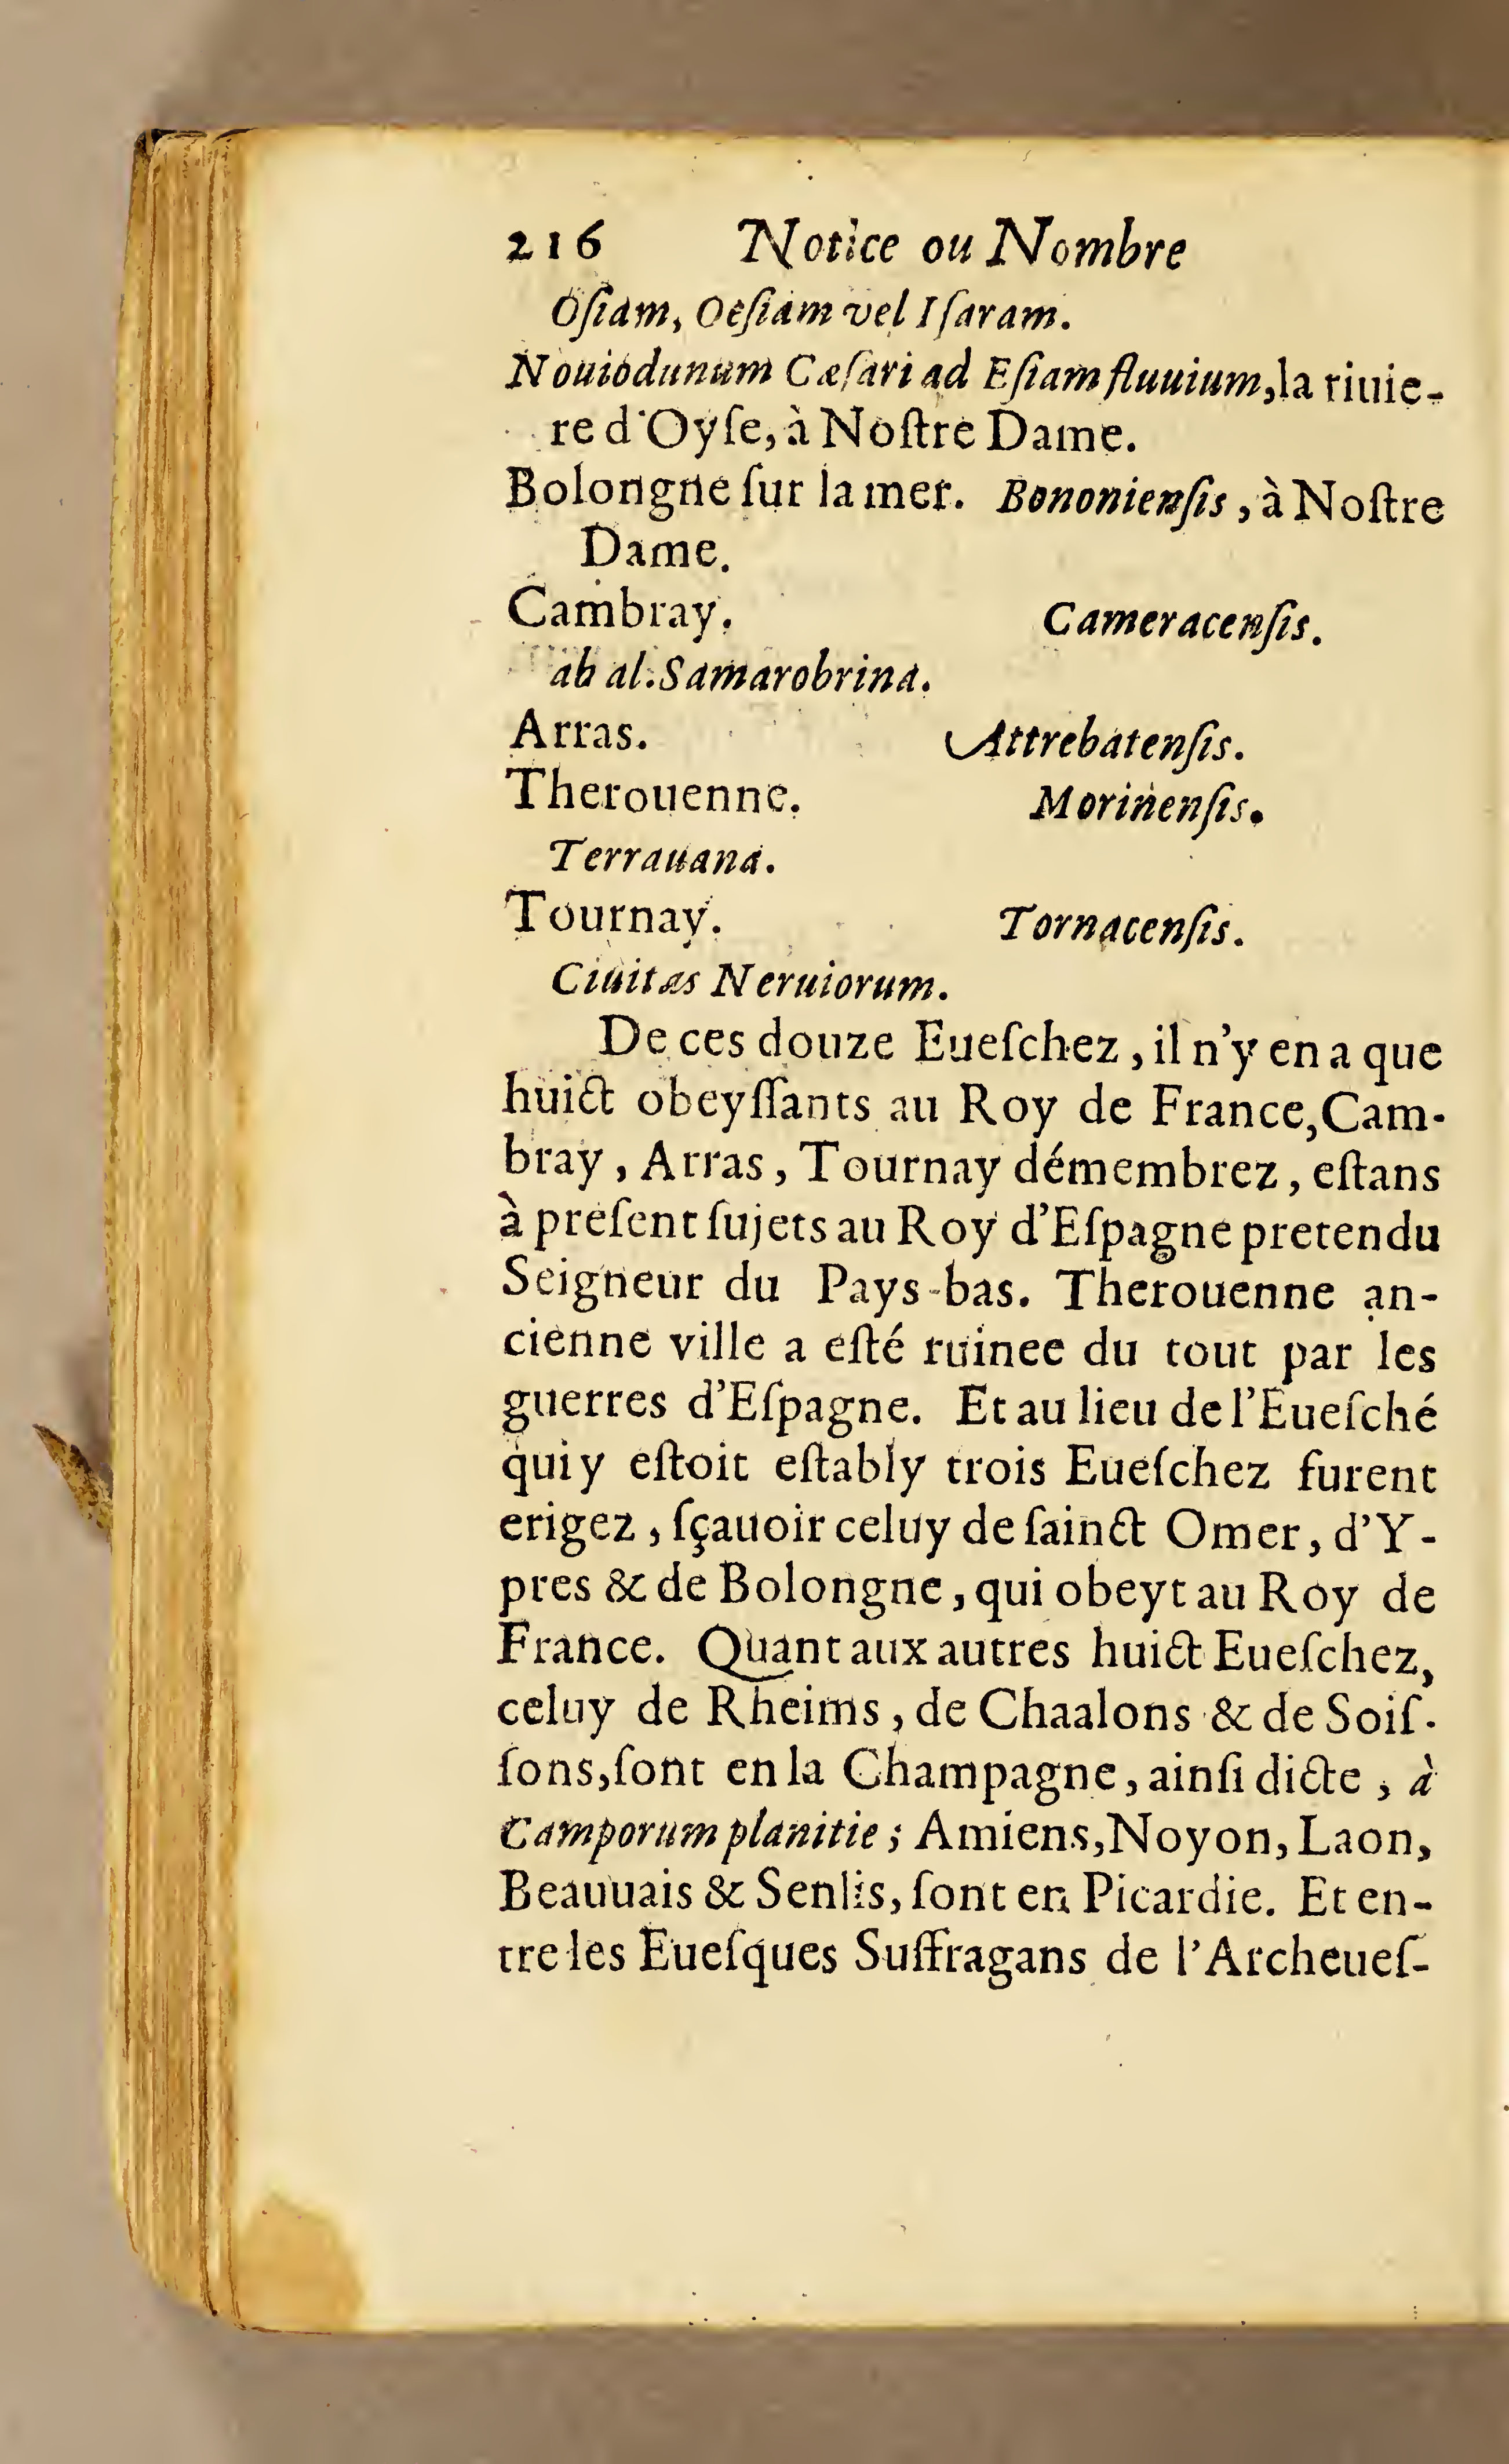 216 Notice ou Nombre
Oſiam, Oeſiam vel Iſaram.
Nouiodunum Cæſari ad Eſiam fluuium, la riuie-
re d'Oyſe, à Noſtre Dame.
Bolongne ſur la mer. Bononienſis, à Noſtre
Dame.
Cambray. Cameracenſis.
ab al. Samarobrina.
Arras. Attrebatenſis.
Therouenne. Morinenſis.
Terrauana.
Tournay. Tornacenſis.
Ciuitas Neruiorum.
De ces douze Eueſchez, il n'y en a que
huict obeyſſants au Roy de France, Cam-
bray, Arras, Tournay démembrez, eſtans
à preſent ſujets au Roy d'Eſpagne pretendu
Seigneur du Pays-bas. Therouenne an-
cienne ville a eſté ruinee du tout par les
guerres d'Eſpagne. Et au lieu de l'Eueſché
qui y eſtoit eſtably trois Eueſchez furent
erigez, ſçauoir celuy de ſainct Omer, d'Y-
pres & de Bolongne, qui obeyt au Roy de
France. Quant aux autres huict Eueſchez,
celuy de Rheims, de Chaalons & de Soiſ-
ſons, ſont en la Champagne, ainſi dicte, à
Camporum planitie; Amiens, Noyon, Laon,
Beauuais & Senlis, ſont en Picardie. Et en-
tre les Eueſques Suffragans de l'Archeueſ-